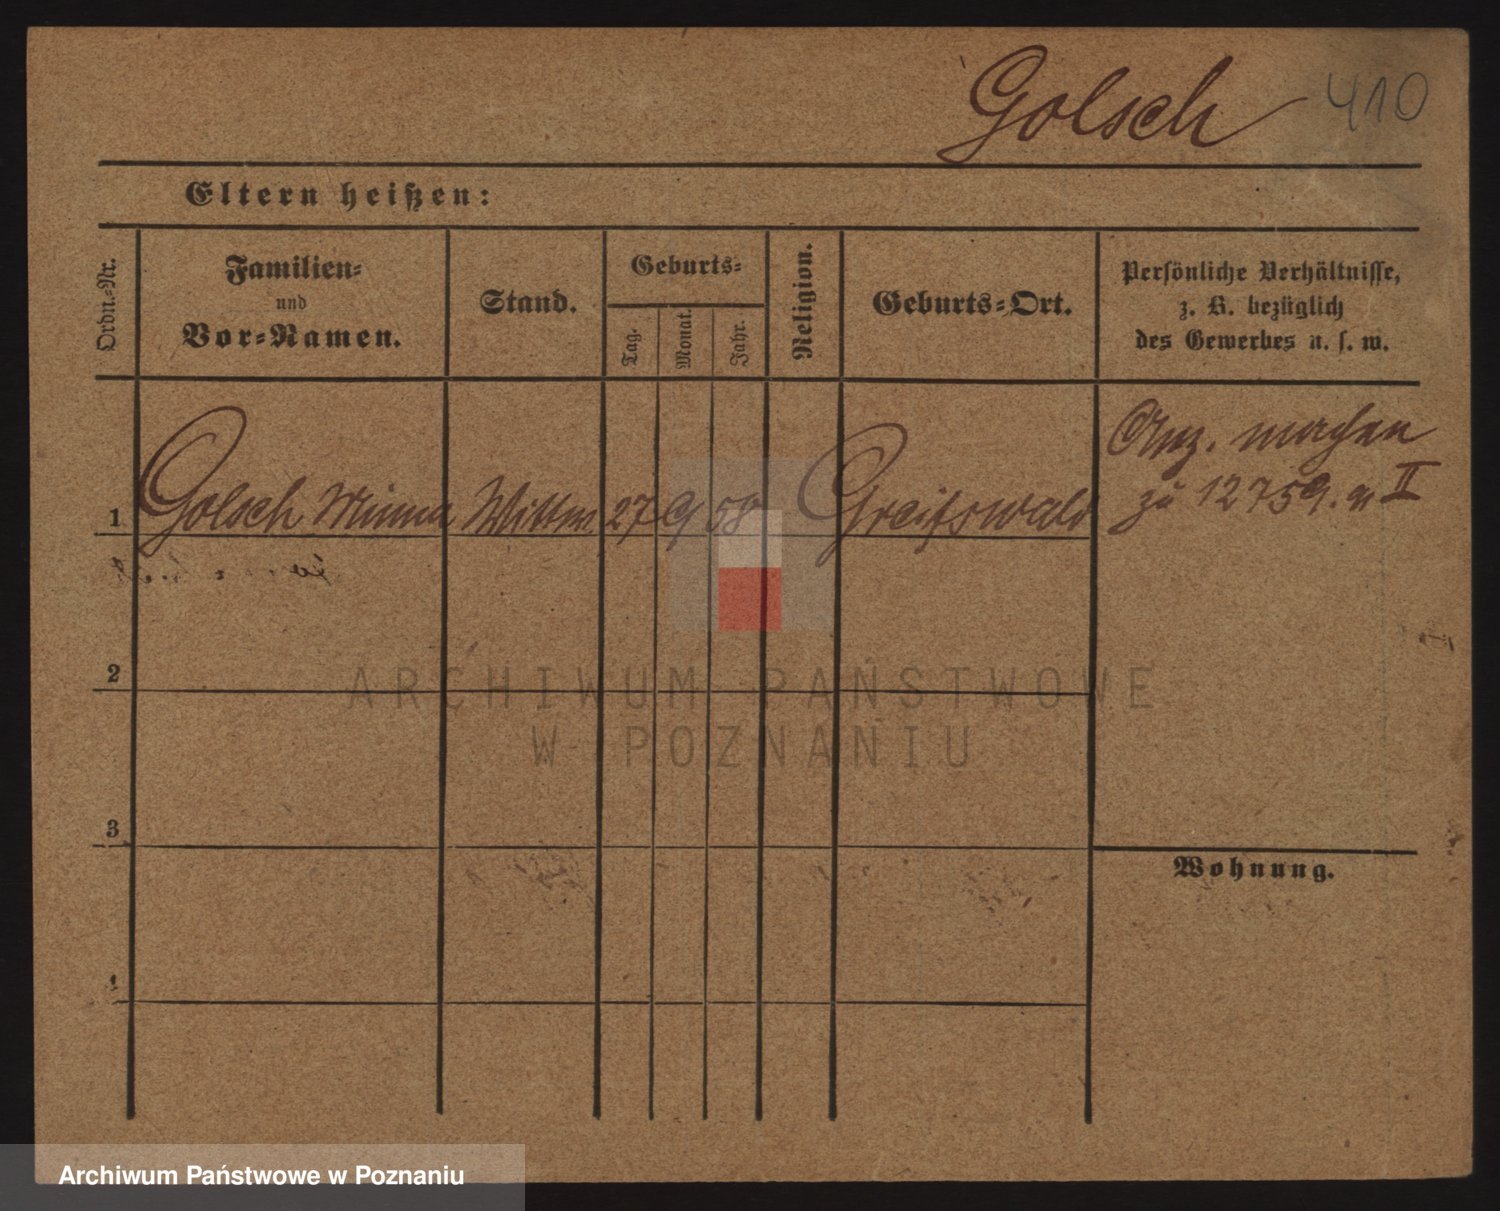 Golsch 410
Eltern heißen:
Ordn.-Nr.
Familien-
und
Vor-Namen.
Stand.
Geburts-
Tag.
Monat.
Jahr.
Religion.
Geburts-Ort.
Persönliche Verhältnisse,
z. B. bezüglich
des Gewerbes u. s. w.
1 Golsch Minna Wittwe 27 9 58 Greifswald
Anz. machen
zu 12759. II
2
3
4
Wohnung.
ARCHIWUM PAŃSTWOWE
W POZNANIU
Archiwum Państwowe w Poznaniu